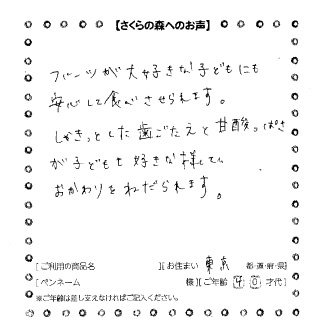 【さくらの森へのお声】
フルーツが大好きな子どもにも
安心して食べさせられます。
しゃきっとした歯ごたえと甘酸っぱさ
が子どもも好きな様で、
おかわりをねだられます。
[ご利用の商品名 ][お住まい 東京 都・道・府・県]
[ペンネーム 様][ご年齢 40 才代]
※ご年齢は差し支えなければご記入ください。